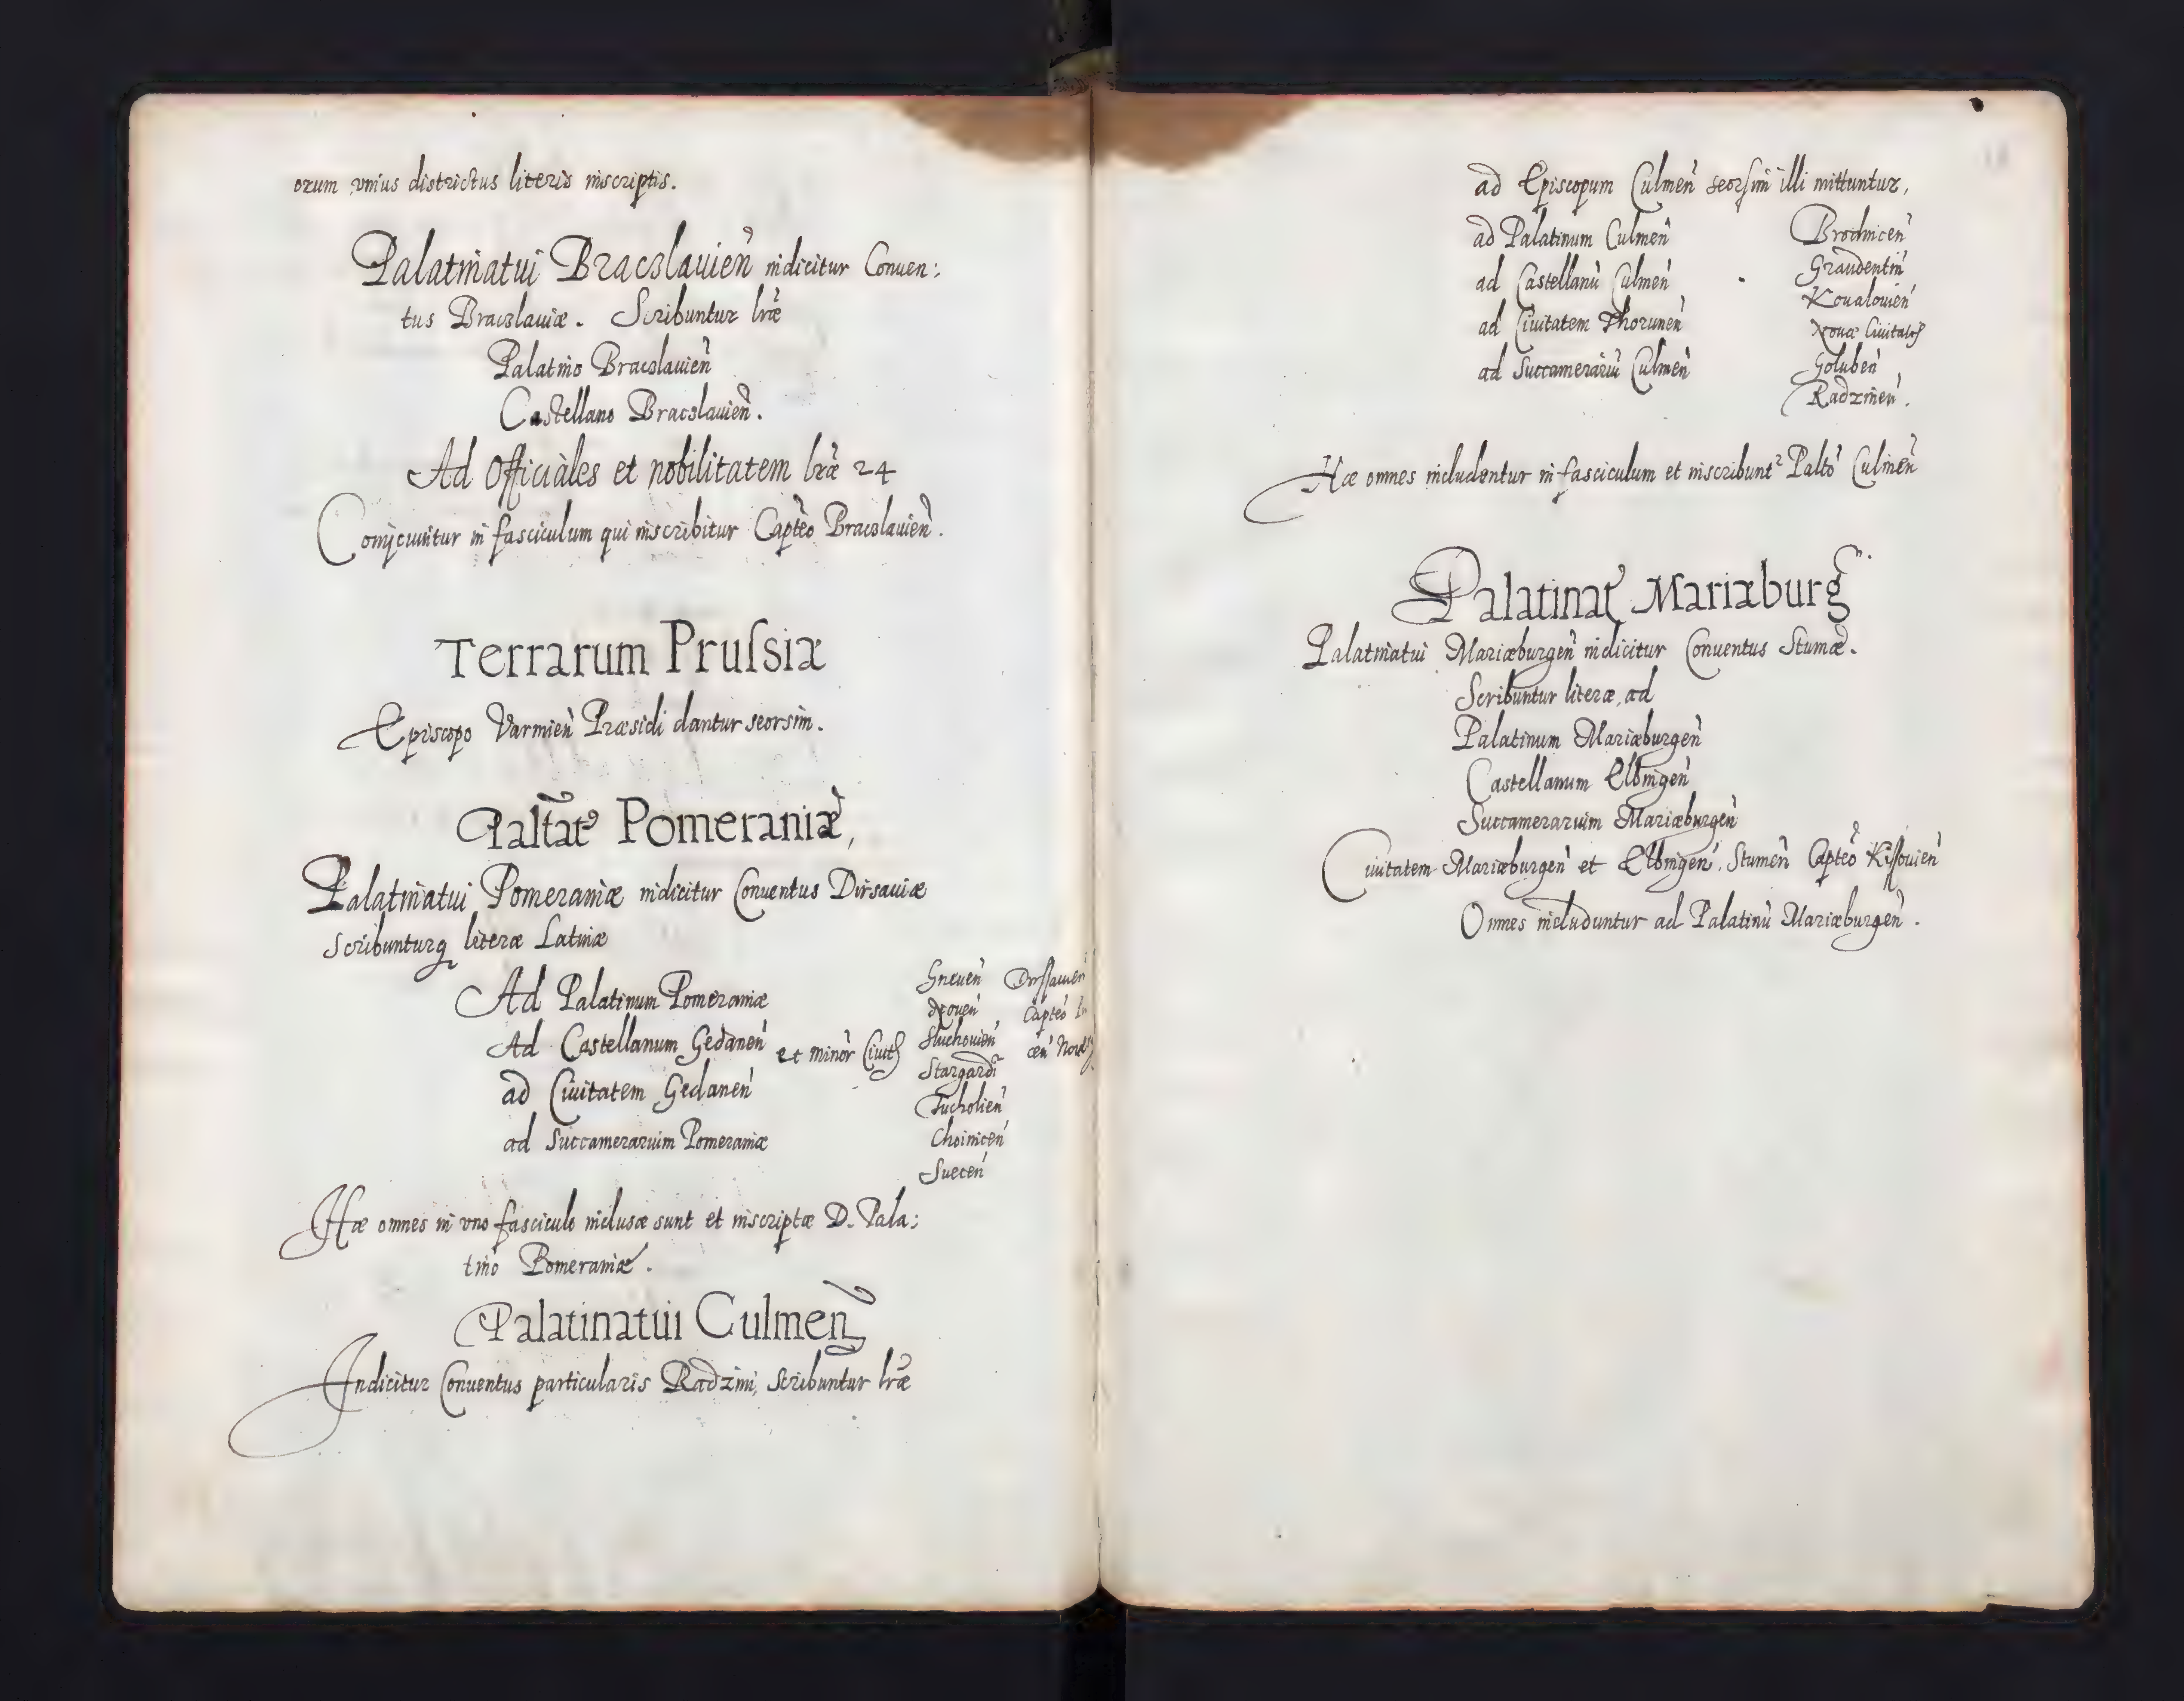 orum vnius districtus literis inscriptis.
Palatinatui Bracslauien̄ indicitur Conuen:
tus Bracslauiæ. Scribuntur lr̄æ
Palatino Bracslauien̄
Castellano Bracslauien̄.
Ad Officiales et nobilitatem lr̄æ 24
Conijciuntur in fasciculum qui inscribitur Capteo Bracslauien̄.
Terrarum Prussiæ
Episcopo Varmien̄ Præsidi dantur seorsim.
Paltat9 Pomeraniæ,
Palatinatui Pomeraniæ indicitur Conuentus Dirsauiæ
Scribunturq literæ Latinæ
Ad Palatinum Pomeraniæ
Ad Castellanum Gedanen̄ et minor Ciuit
ad Ciuitatem Gedanen̄
ad Succamerarium Pomeraniæ
Gneuen̄
Sluchouien̄
Stargardi
Tucholien̄
Choinicen̄
Suecen̄
Dirssauien̄
Capteo
Hæ omnes in vno fasciculo inclusæ sunt et inscriptæ D. Pala:
tino Pomeraniæ.
Palatinatui Culmen̄
Indicitur Conuentus particularis Radzini, Scribuntur lr̄æ
ad Episcopum Culmen̄ seorsim illi mittuntur,
ad Palatinum Culmen̄
ad Castellanū Culmen̄
ad Ciuitatem Thorunen̄
ad Succamerariū Culmen̄
Brodnicen̄
Graudentin̄
Koualouien̄
Nouæ Ciuitatis
Goluben̄
Radzinen̄.
Hæ omnes includentur in fasciculum et inscribunt2 Palto Culmen̄
Palinat Mariæburg
Palatinatui Mariæburgen̄ indicitur Conuentus Stumæ.
Scribuntur literæ, ad
Palatinum Mariæburgen̄
Castellanum Elbingen̄
Succamerarium Mariæburgen̄
Ciuitatem Mariæburgen̄ et Elbingen̄. Stumen̄ Capteo Kissouien̄
Omnes includuntur ad Palatinū Mariæburgen̄.